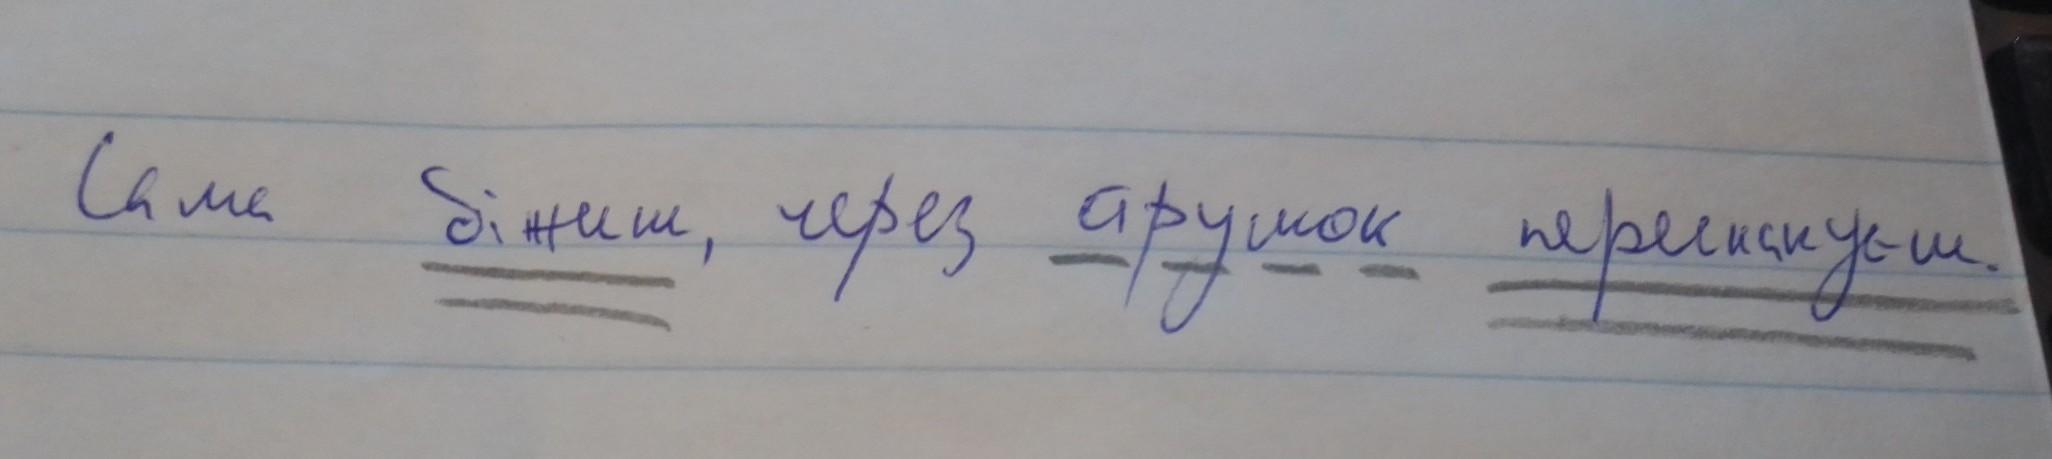 Сама біжиш, через ярумок перескакуєш.